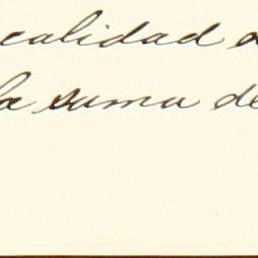 calidad d
la suma de